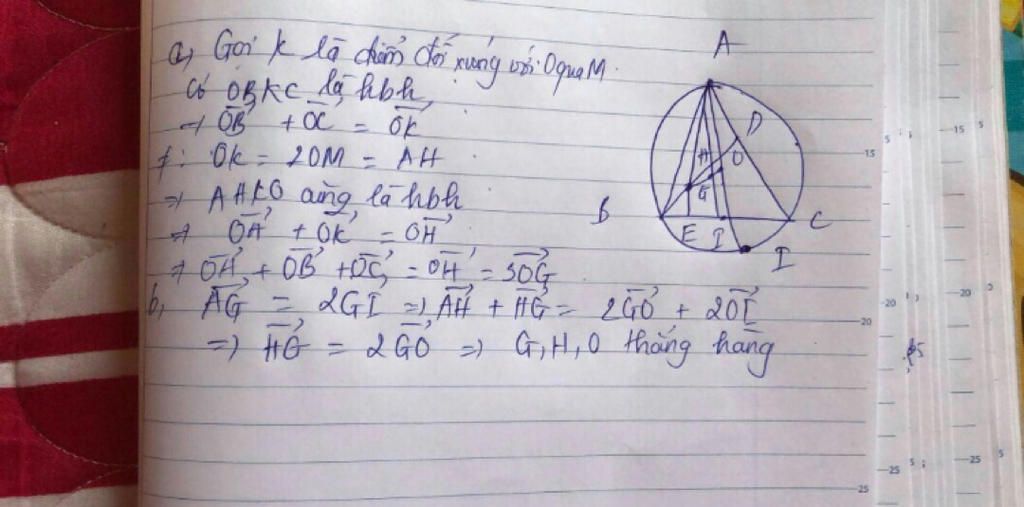 a, Gọi K là điểm đối xứng với O qua M.
Có OBKC là hbh
⇒ OB→ + OC→ = OK→
OK = 2OM = AH
⇒ AHKO cũng là hbh
⇒ OA→ + OK→ = OH→
⇒ OH→ + OB→ + OC→ = OH→ = 3OG→
b, AG→ = 2GI→ ⇒ AH→ + HG→ = 2GO→ + 2OI→
⇒ HG→ = 2GO→ ⇒ G, H, O thẳng hàng
A
D
H
O
G
B
E
I
C
I
5
15
5
15
20
20
20
25
25
5
25